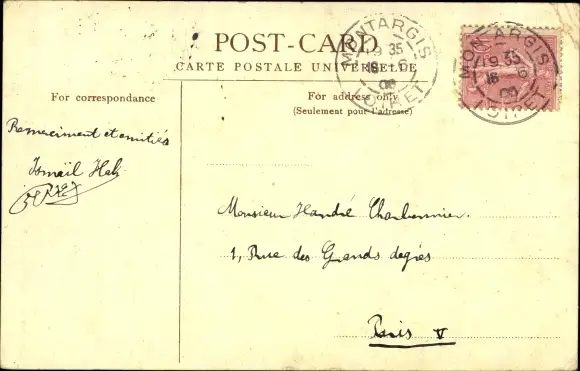 POST-CARD
CARTE POSTALE UNIVERSELLE
MONTARGIS
19 35
16 - 6
06
LOIRET
MONTARGIS
19 35
16 - 6
LOIRET
For correspondance
For address only
(Seulement pour l'adresse)
Remerciment et amitiés
Ismaïl
Monsieur Charbonnier.
1, Rue des Grands degrés
Paris V